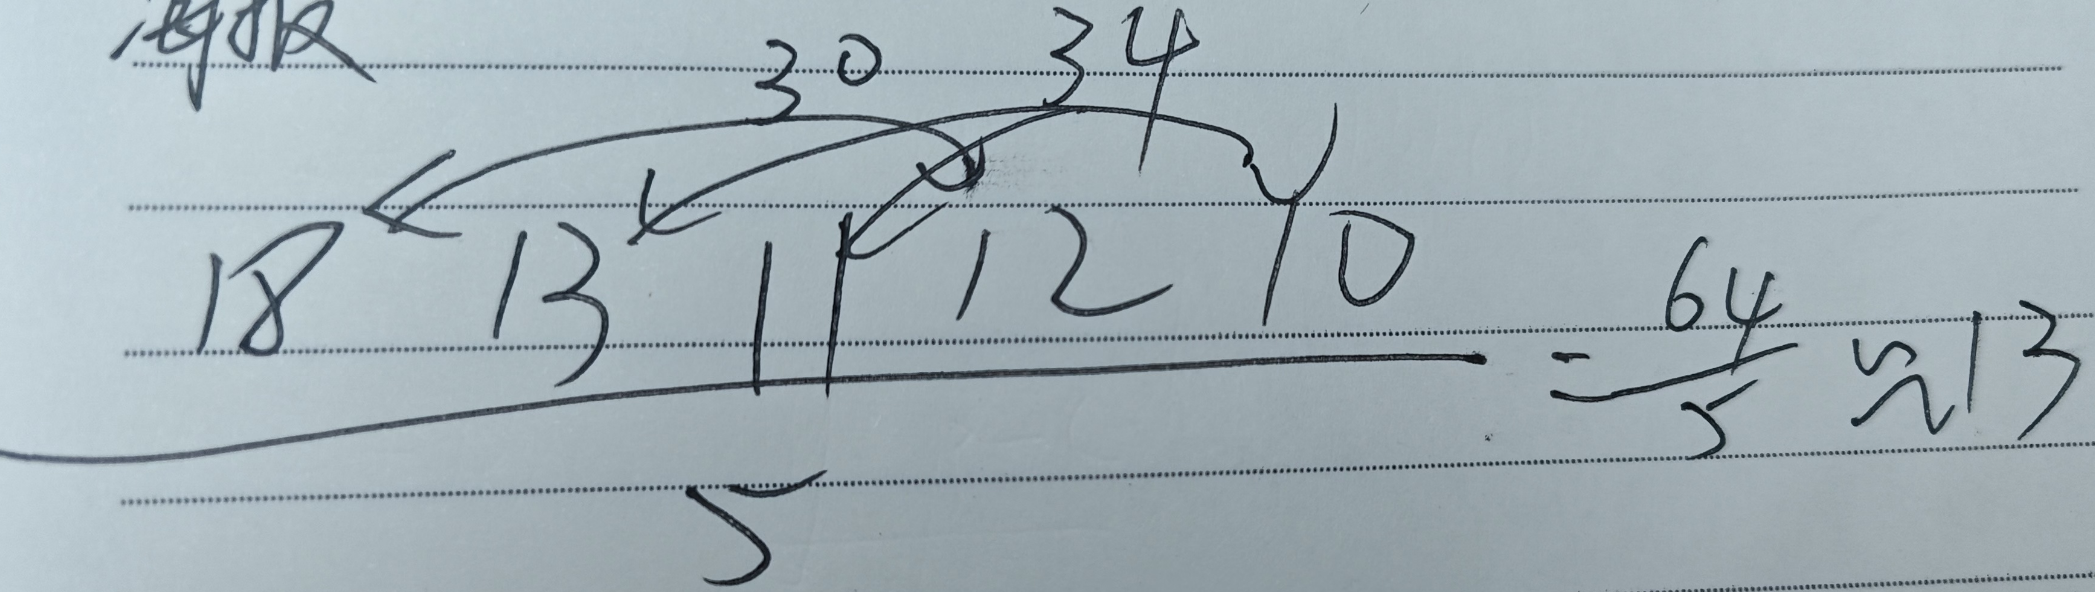 海报
30 34
18 13 11 12 10
= 64/5 ≈ 13
5